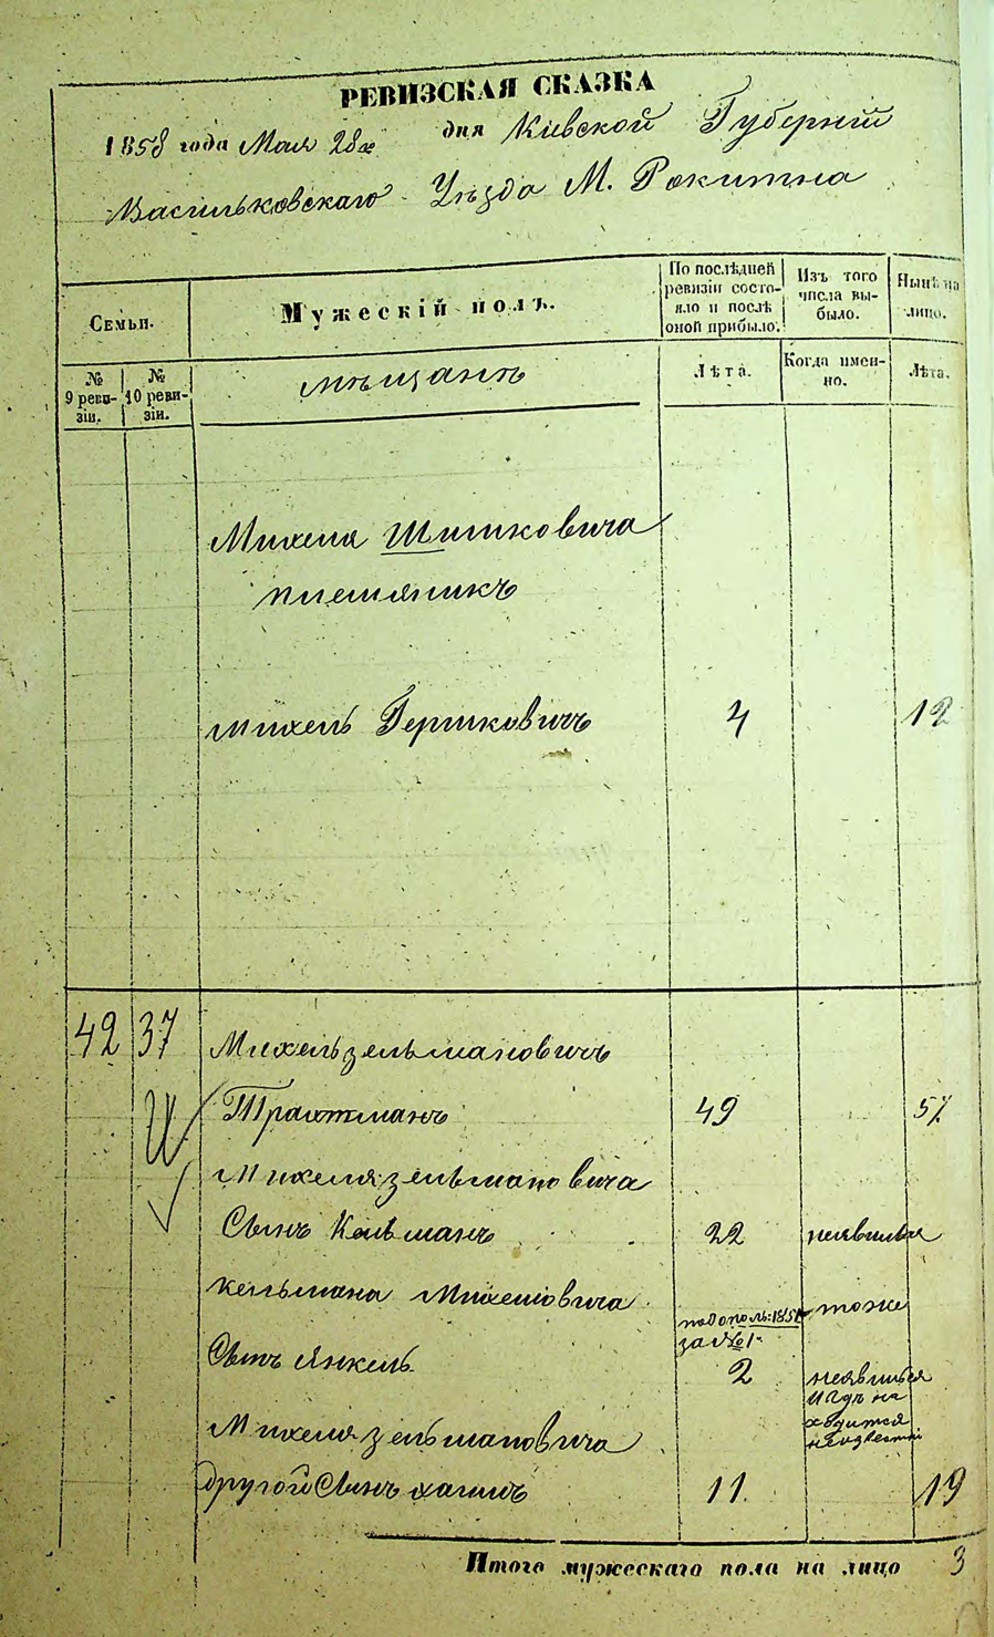 РЕВИЗСКАЯ СКАЗКА
1858 года Мая 28го дня Кіевской Губерніи
Васильковскаго Уѣзда М. Рокитна
Семьи.
Мужескій полъ.
По послѣдней ревизіи состояло и послѣ оной прибыло.
Изъ того числа выбыло.
Нынѣ на лицо.
№ 9 ревизіи.
№ 10 ревизіи.
мѣщанѣ
Лѣта.
Когда именно.
Лѣта.
Михеля Шишковича
племяникъ
михель Гершковичъ 4 12
42 37 Михель зельмановичъ
Трахтманъ 49 57
Михеля зельмановича
Сынъ Кельманъ 22 неявился
кельмана Михелювича
подополь: 1851 за №1 тоже
Сынъ Янкель 2 неявился
и гдѣ находится неизвестно
Михеля зельмановича
другой Сынъ хаимъ 11. 19
Итого мужескаго пола на лицо 3